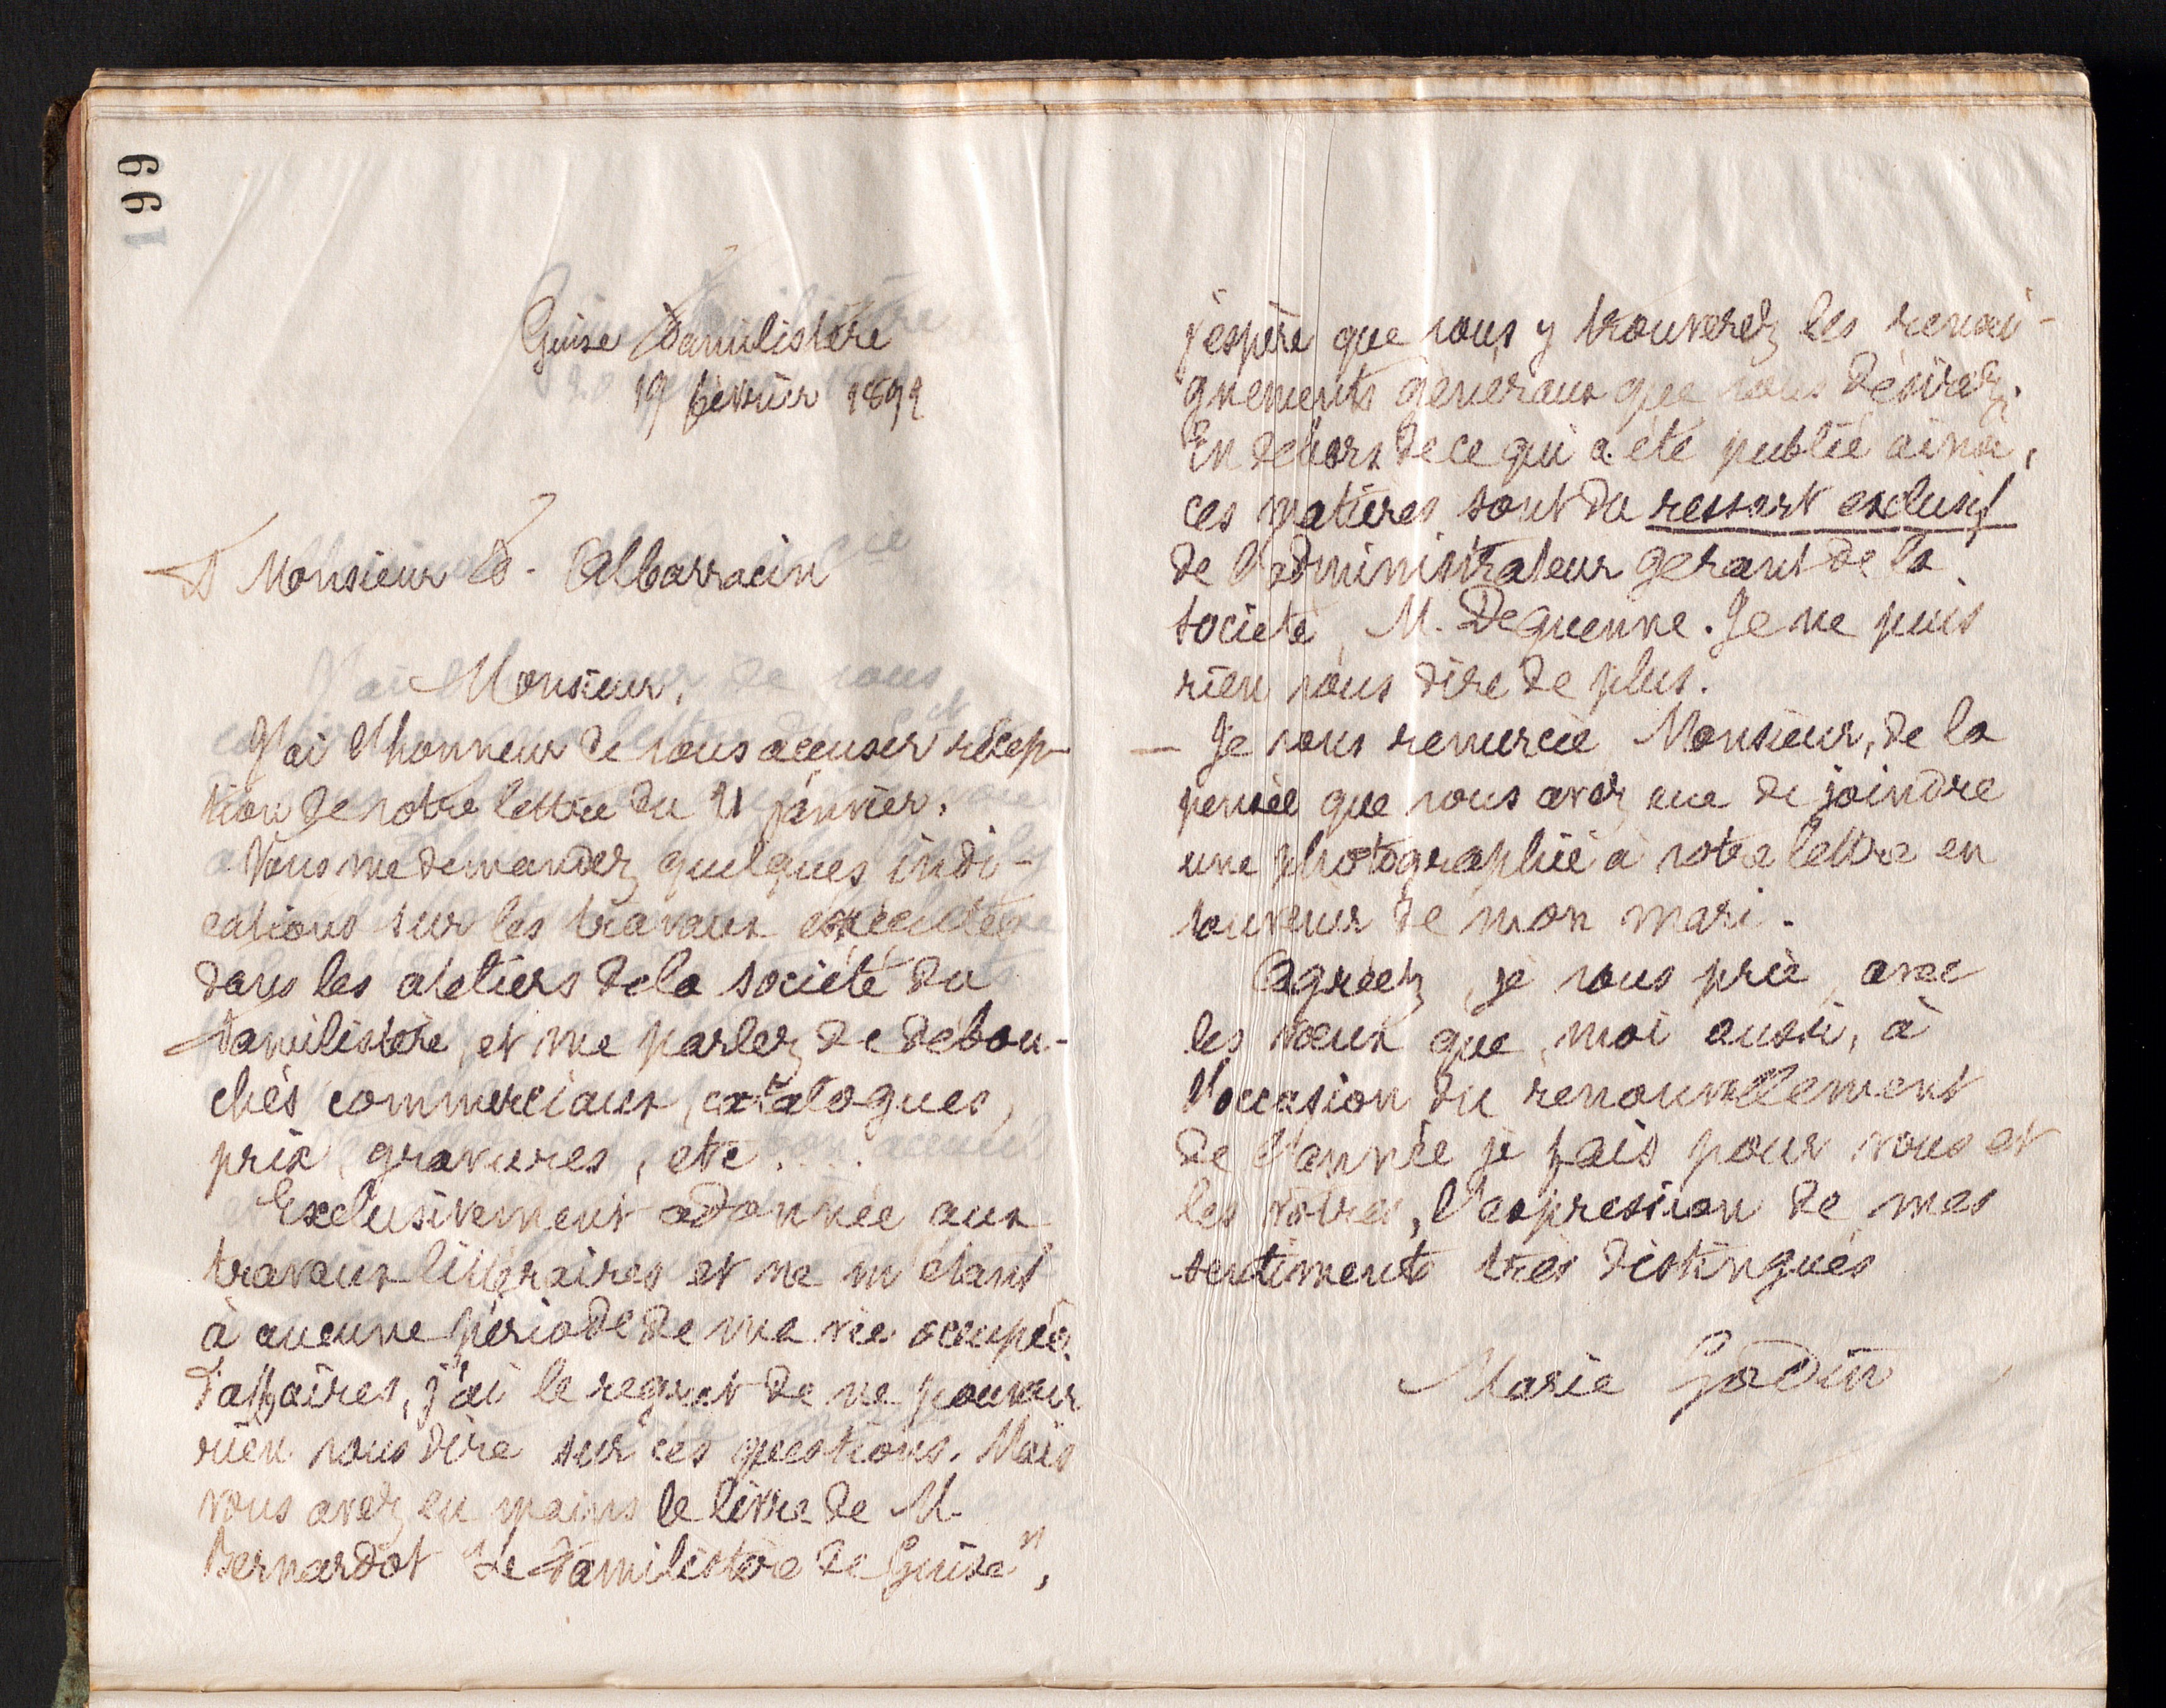 199
Guise Familistère
19 février 1891
A Monsieur D. Albarracin
Monsieur,
J'ai l'honneur de vous accuser récep-
tion de votre lettre du 21 janvier.
Vous me demandez quelques indi-
cations sur les travaux exécutés
dans les ateliers de la société du
Familistère, et me parlez de débou-
chés commerciaux, catalogues,
prix, gravures, etc...
Exclusivement adonnée aux
travaux littéraires et ne m'étant
à aucune période de ma vie occupée
d'affaires, j'ai le regret de ne pouvoir
rien vous dire sur ces questions. Mais
vous avez eu mains le livre de M.
Bernardot "Le Familistère de Guise",
j'espère que vous y trouverez les rensei-
gnements généraux que vous désirez.
En dehors de ce qui a été publié ainsi,
ces matières sont du ressort exclusif
de l'administrateur gérant de la
société, M. Dequenne. Je ne puis
rien vous dire de plus.
— Je vous remercie, Monsieur, de la
pensée que vous avez eue de joindre
une photographie à votre lettre en
souvenir de mon mari.
Agréez, je vous prie, avec
les vœux que, moi aussi, à
l'occasion du renouvellement
de l'année je fais pour vous et
les vôtres, l'expression de mes
sentiments très distingués
Marie Godin